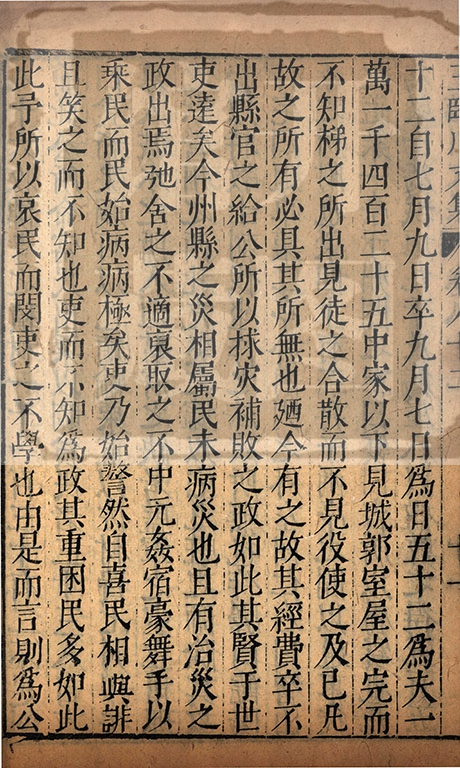 王臨川文集 卷八十二
十二自七月九日卒九月七日爲日五十二爲夫一
萬一千四百二十五中家以下見城郭室屋之完而
不知梯之所出見徒之合散而不見役使之及已凡
故之所有必具其所無也廼今有之故其經費卒不
出縣官之給公所以捄灾補敗之政如此其賢于世
吏遠矣今州縣之災相屬民未病災也且有治災之
政出焉弛舍之不適裒取之不中元姦宿豪舞手以
乘民而民始病病極矣吏乃始謷然自喜民相與誹
且笑之而不知也吏而不知爲政其重困民多如此
此予所以哀民而閔吏之不學也由是而言則爲公